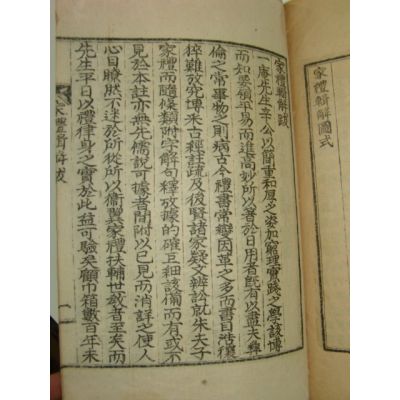 家禮輯解圖式
家禮輯解跋
一庵先生辛公以簡重和厚之姿加窮理實踐之學該博
而知要領平易而進高妙所以著於日用者旣有以盡夫彛
倫之常事物之則病古今禮書常變因革之多而書目浩穰
猝難放究博采古經註疏及後賢諸家疑文辨訟就朱夫子
家禮而隨條類附字解句釋攷據的確巨細該備而有或不
見於本註亦無先儒說可據者間附以己見而消詳之使人
心目瞭然不迷於所從所以衛翼家禮扶輔世敎者至矣而
先生平日以禮律身之實於此益可驗矣顧巾箱數百年未
家禮輯解跋 一